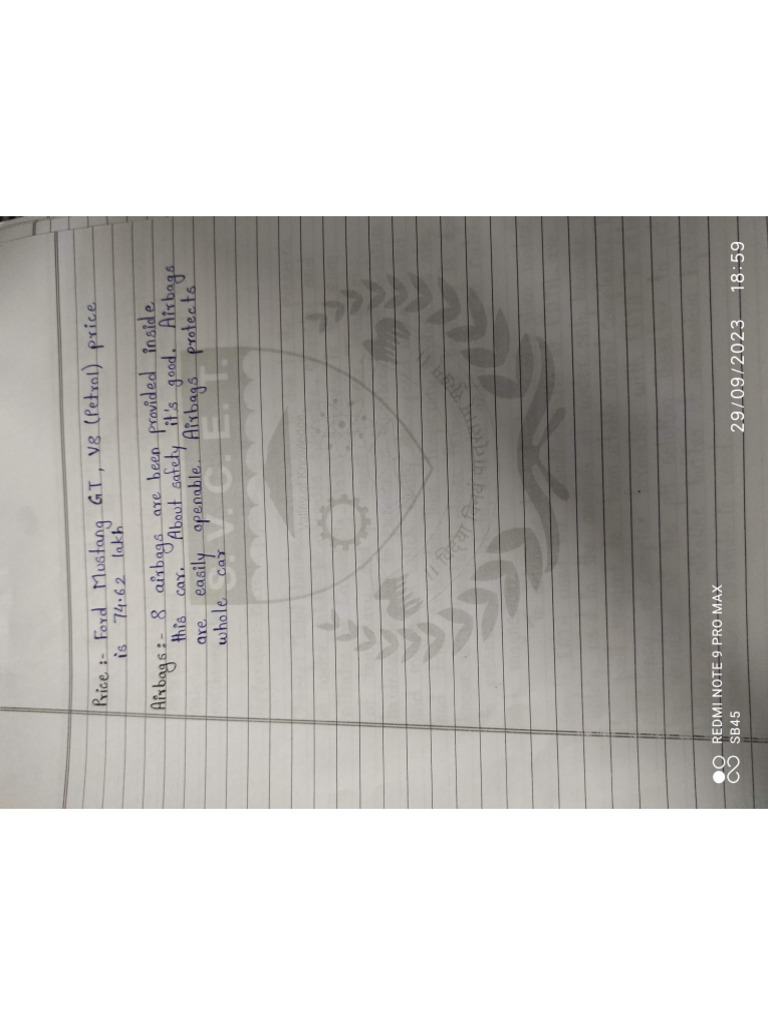 Price :- Ford Mustang GT, V8 (Petrol) price
is 74.62 lakh
Airbags :- 8 airbags are been provided inside
this car. About safety it's good. Airbags
are easily openable. Airbags protects
whole car
S.V.C.E.T.
REDMI NOTE 9 PRO MAX
SB45
29/09/2023 18:59